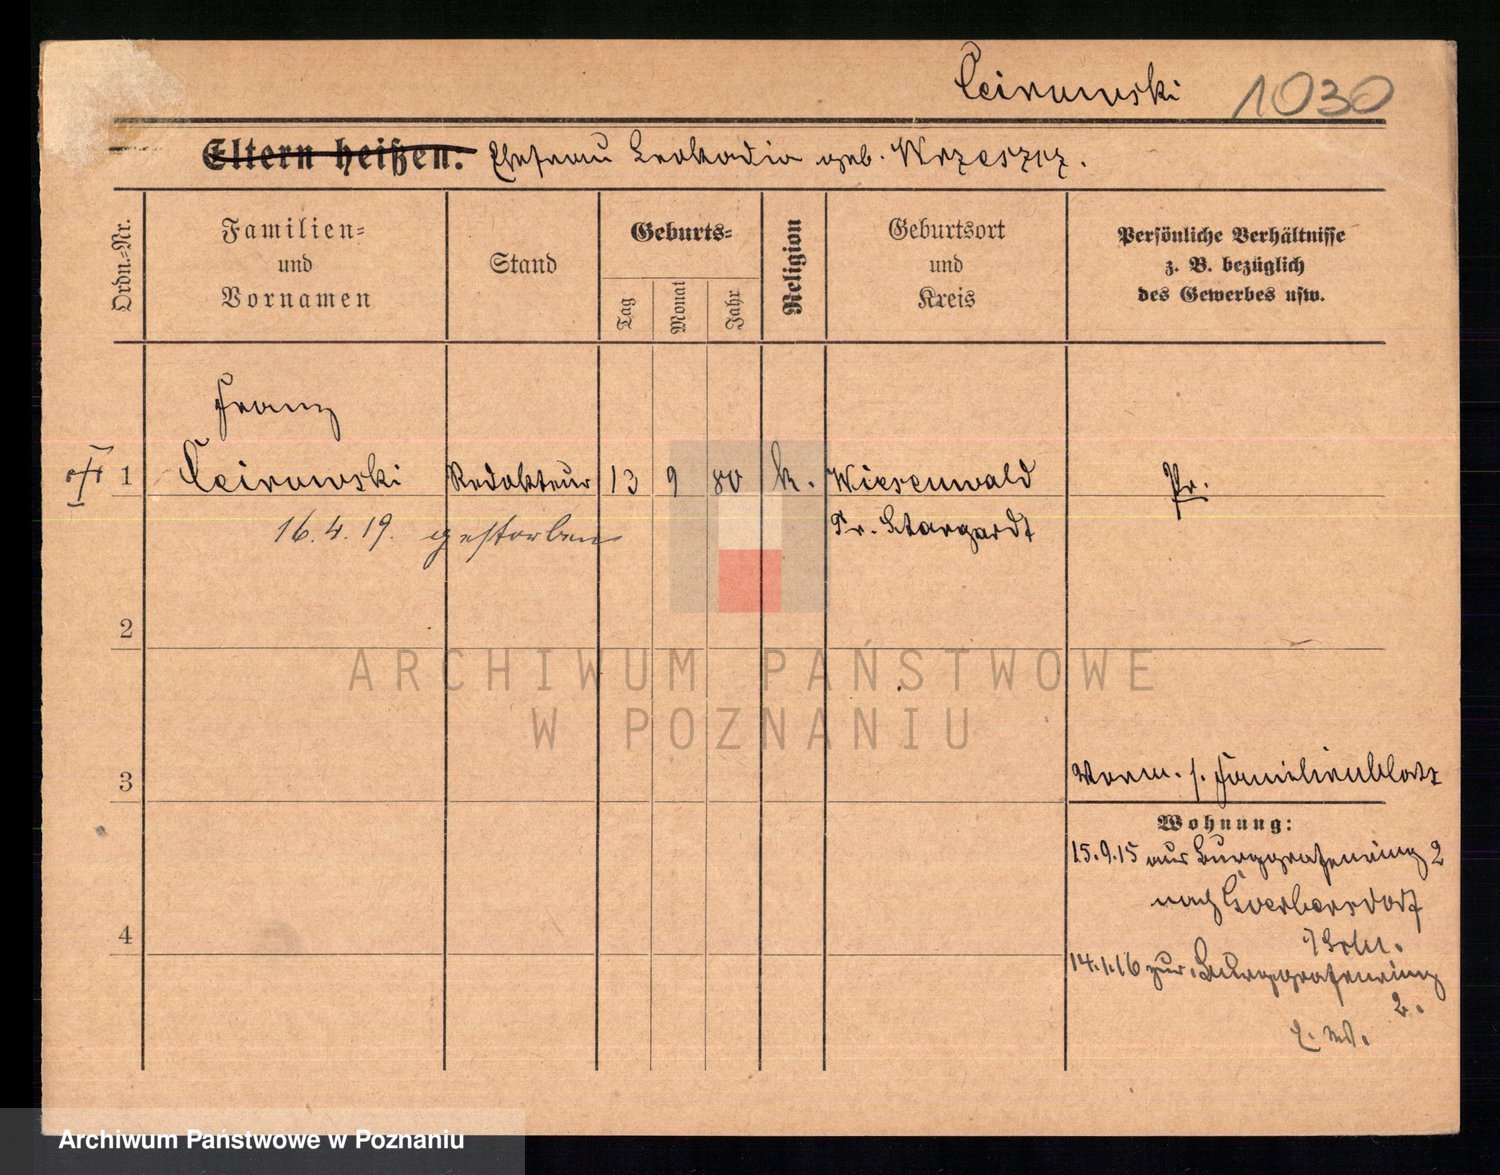 Ceirowski 1030
Eltern heißen: Ehefrau Leokadia geb. Wrzeszcz.
Ordn.-Nr.
Familien-
und
Vornamen
Stand
Geburts-
Tag
Monat
Jahr
Religion
Geburtsort
und
Kreis
Persönliche Verhältnisse
z. B. bezüglich
des Gewerbes usw.
Franz
1 Ceirowski Redakteur 13 9 80 k. Wiesenwald Pr.
16.4.19. gestorben Pr. Stargardt
2
ARCHIWUM PAŃSTWOWE
W POZNANIU
3 Verm. s. Familienblatt
Wohnung:
15.9.15 aus Burggrafenring 2
nach Goerbersdorf
4
14.1.16 zur. Burggrafenring
2.
Archiwum Państwowe w Poznaniu